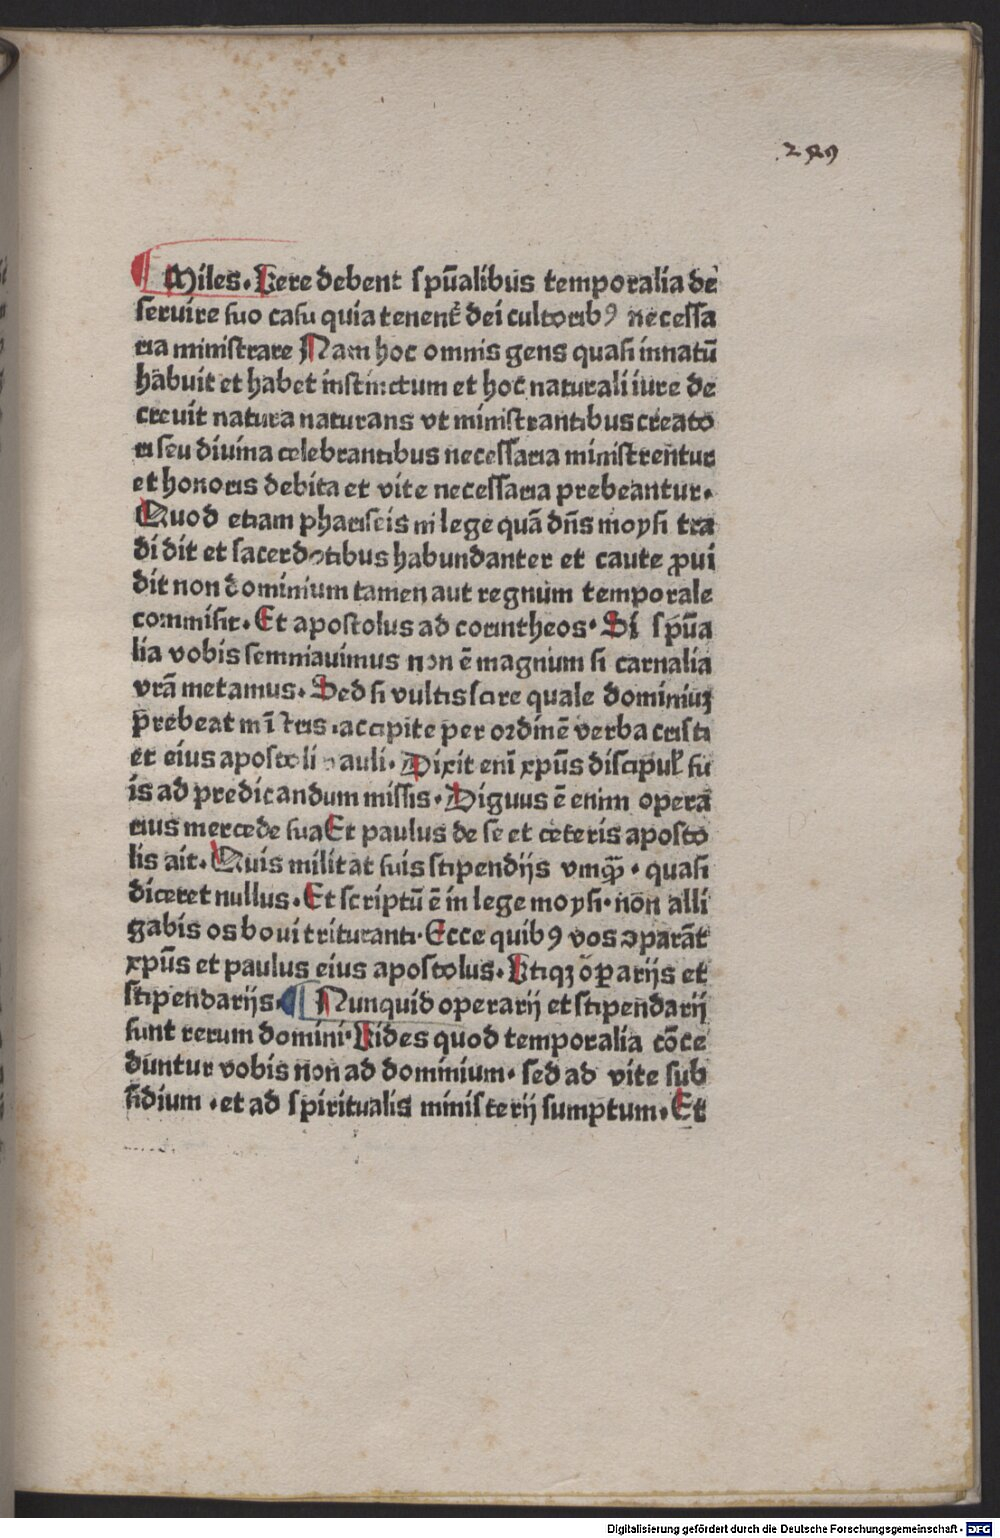 249
Miles. Vere debent spũalibus temporalia de
seruire suo casu quia tenent̃ dei cultorib9 necessa
ria ministrare Nam hoc omnis gens quasi innatũ
habuit et habet instinctum et hoc naturali iure de
creuit natura naturans vt ministrantibus creato
ri seu diuina celebrantibus necessaria ministrentur
et honoris debita et vite necessaria prebeantur.
Quod etiam phariseis in lege quã dñs moysi tra
didit et sacerdotibus habundanter et caute ꝓui
dit non dominium tamen aut regnum temporale
commisit. Et apostolus ad corintheos. Si spũa
lia vobis seminauimus non ẽ magnum si carnalia
vrã metamus. Sed si vultis scire quale dominiuꝫ
prebeat accipite per ordinẽ verba cristi
et eius apostoli pauli. Dixit enĩ xpũs discipul̃ su
is ad predicandum missis. Dignus ẽ enim opera
rius mercede sua Et paulus de se et ceteris aposto
lis ait. Quis militat suis stipendijs vmqꝫ̃. quasi
diceret nullus. Et scriptũ ẽ in lege moysi. non alli
gabis os boui trituranti. Ecce quib9 vos ꝯparãt
xpũs et paulus eius apostolus. Vtiqꝫ oꝑarijs et
stipendarijs. Nunquid operarij et stipendarij
sunt rerum domini. Vides quod temporalia cõce
duntur vobis non ad dominium. sed ad vite sub
sidium. et ad spiritualis ministerij sumptum. Et
Digitalisierung gefördert durch die Deutsche Forschungsgemeinschaft - DFG